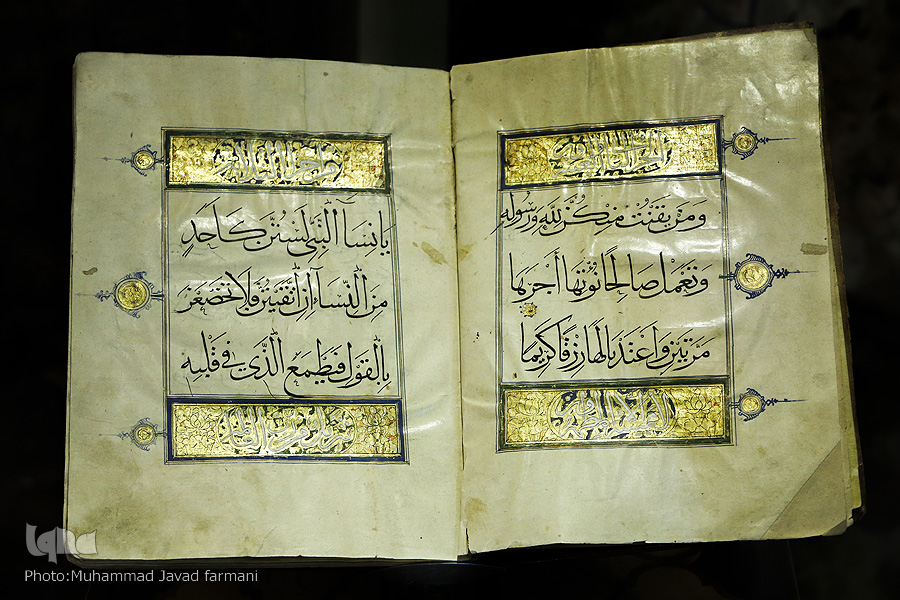 وَمَنْ يَقْنُتْ مِنْكُنَّ لِلَّهِ وَرَسُولِهِ
وَتَعْمَلْ صَالِحًا نُؤْتِهَا أَجْرَهَا
مَرَّتَيْنِ وَأَعْتَدْنَا لَهَا رِزْقًا كَرِيمًا
يَا نِسَاءَ النَّبِيِّ لَسْتُنَّ كَأَحَدٍ
مِنَ النِّسَاءِ إِنِ اتَّقَيْتُنَّ فَلَا تَخْضَعْنَ
بِالْقَوْلِ فَيَطْمَعَ الَّذِي فِي قَلْبِهِ
iqna
Photo:Muhammad Javad farmani